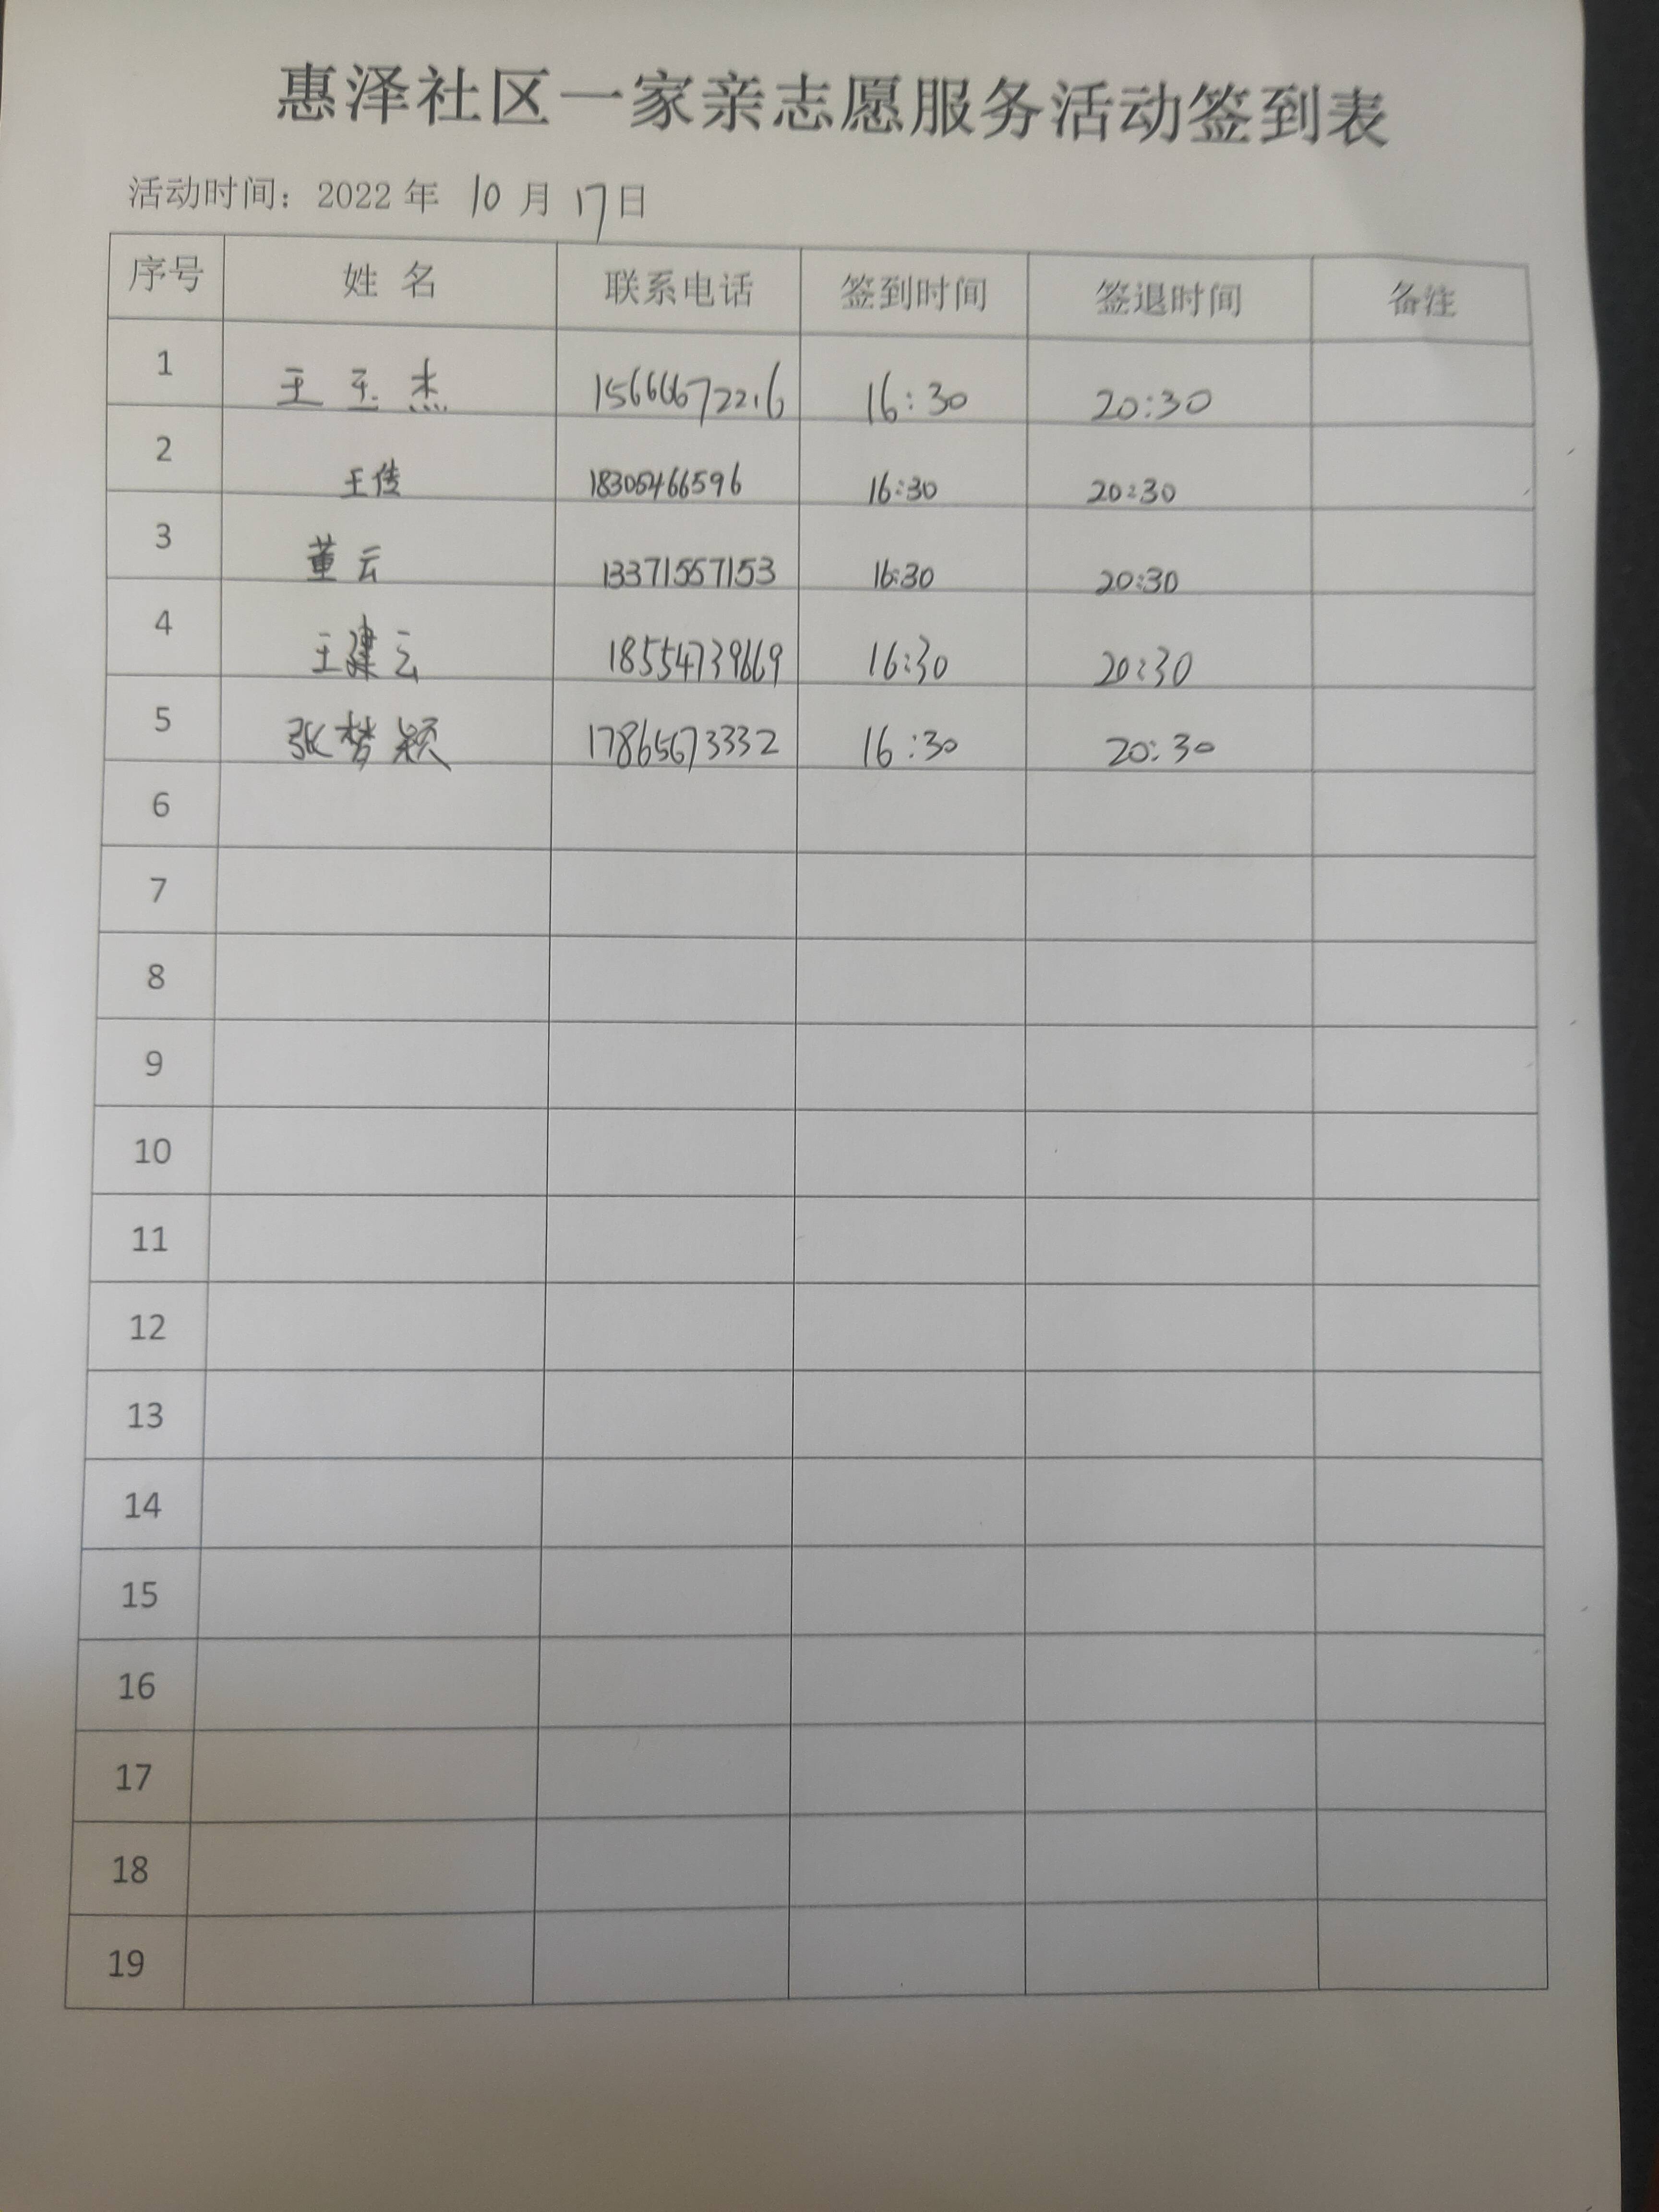 惠泽社区一家亲志愿服务活动签到表
活动时间：2022 年 10 月 17日
序号 姓 名 联系电话 签到时间 签退时间 备注
1 王玉杰 16:30 20:30
2 王传 18305466596 16:30 20:30
3 董云 13371557153 16:30 20:30
4 王建云 18554739669 16:30 20:30
5 张梦颖 17865673332 16:30 20:30
6
7
8
9
10
11
12
13
14
15
16
17
18
19